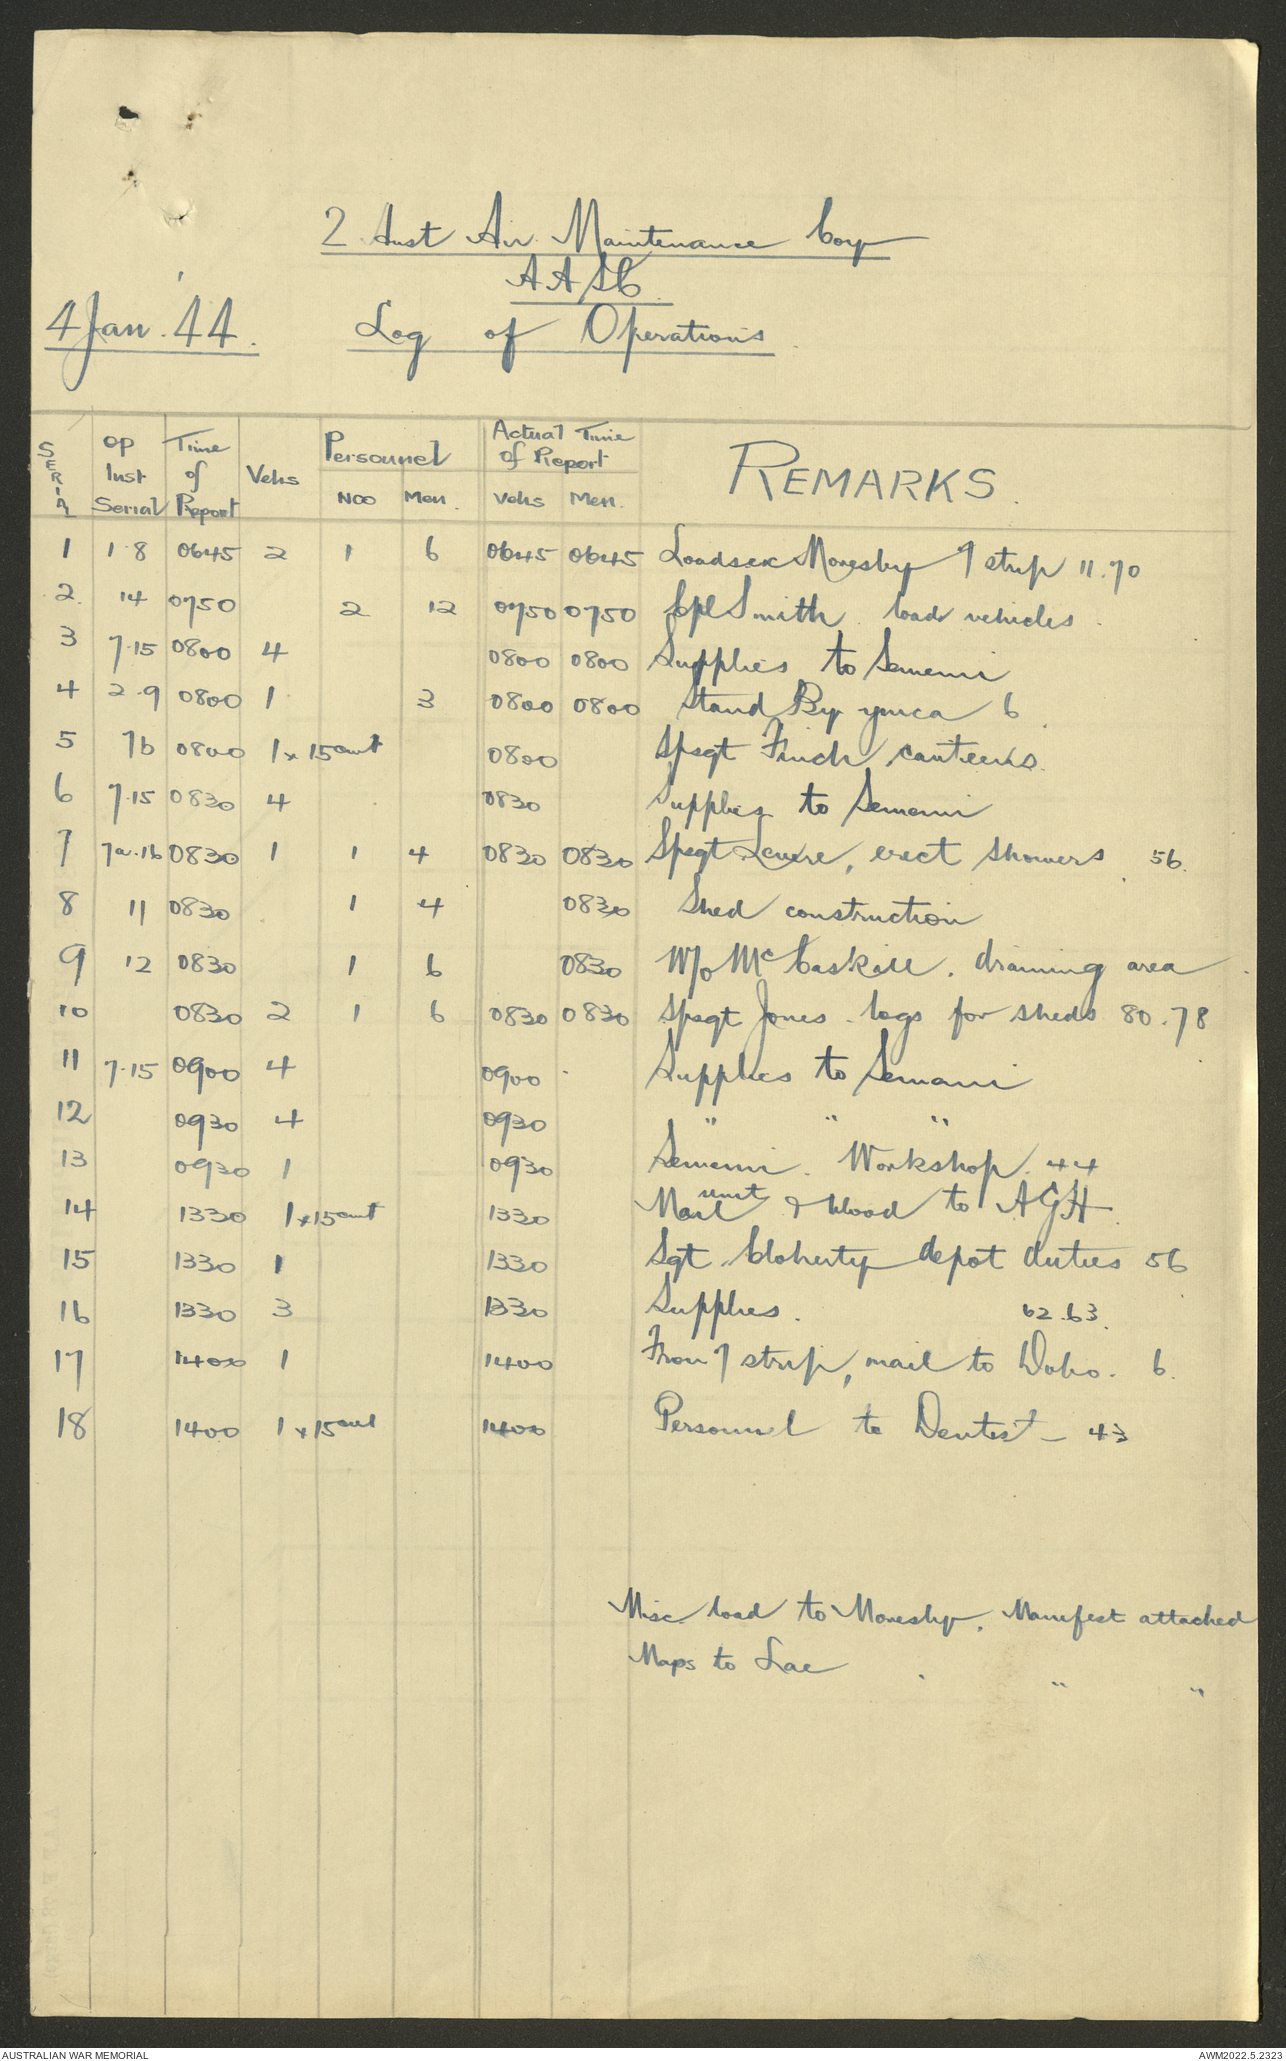 2 Aust Air Maintenance Coy
AASC
4 Jan. '44. Log of Operations
SERIAL Op Inst Serial Time of Report Vehs Personnel NCO Men. Actual Time of Report Vehs Men. REMARKS.
1 1-8 0645 2 1 6 0645 0645 Loadsex Moresby 7 strip 11.70
2. 14 0750 2 12 0750 0750 Cpl Smith. load vehicles.
3 7.15 0800 4 0800 0800 Supplies to Sememi
4 2.9 0800 1 3 0800 0800 Stand By ymca 6
5 7b 0800 1 x 15cwt 0800 Spsgt Finch canteens.
6 7.15 0830 4 0830 Supplies to Sememi
7 7a.16 0830 1 1 4 0830 0830 Spsgt, erect showers 56.
8 11 0830 1 4 0830 Shed construction
9 12 0830 1 6 0830 W/o McCaskill. draining area
10 0830 2 1 6 0830 0830 Spsgt Jones. logs for sheds 80.78
11 7.15 0900 4 0900 Supplies to Sememi
12 0930 4 0930 " " "
13 0930 1 0930 Sememi. Workshop. 44
14 1330 1 x 15cwt 1330 Mail & blood to AGH.
15 1330 1 1330 Sgt. Cloherty depot duties 56
16 1330 3 1330 Supplies. 62.63.
17 1400 1 1400 From 7 strip, mail to Dobo. 6.
18 1400 1 x 15cwt 1400 Personnel to Dentist - 43
Misc load to Moresby. Manifest attached
Maps to Lae " "
AUSTRALIAN WAR MEMORIAL AWM2022.5.2323